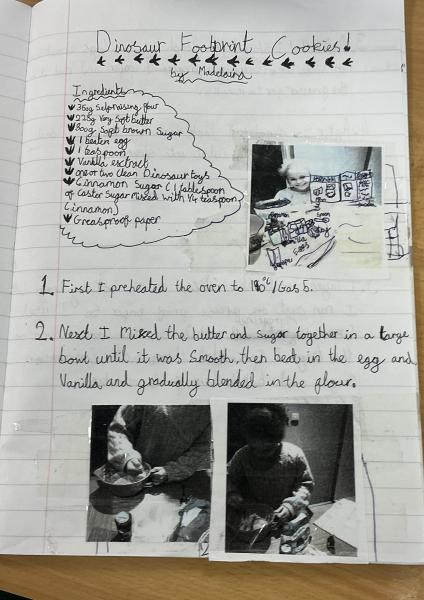 Dinosaur Footprint Cookies!
by Madelaina
Ingredients
350g Self raising flour
225g Very soft butter
800g Soft brown Sugar
1 beaten egg
1 teaspoon
Vanilla extract
one or two clean Dinosaur toys
Cinnamon Sugar (1 tablespoon
of caster Sugar Mixed with 1/4 teaspoon
Cinnamon)
Greaseproof paper
1. First I preheated the oven to 190°c/Gas 5.
2. Next I Mixed the butter and Sugar together in a large
bowl until it was Smooth, then beat in the egg and
Vanilla and gradually blended in the flour.